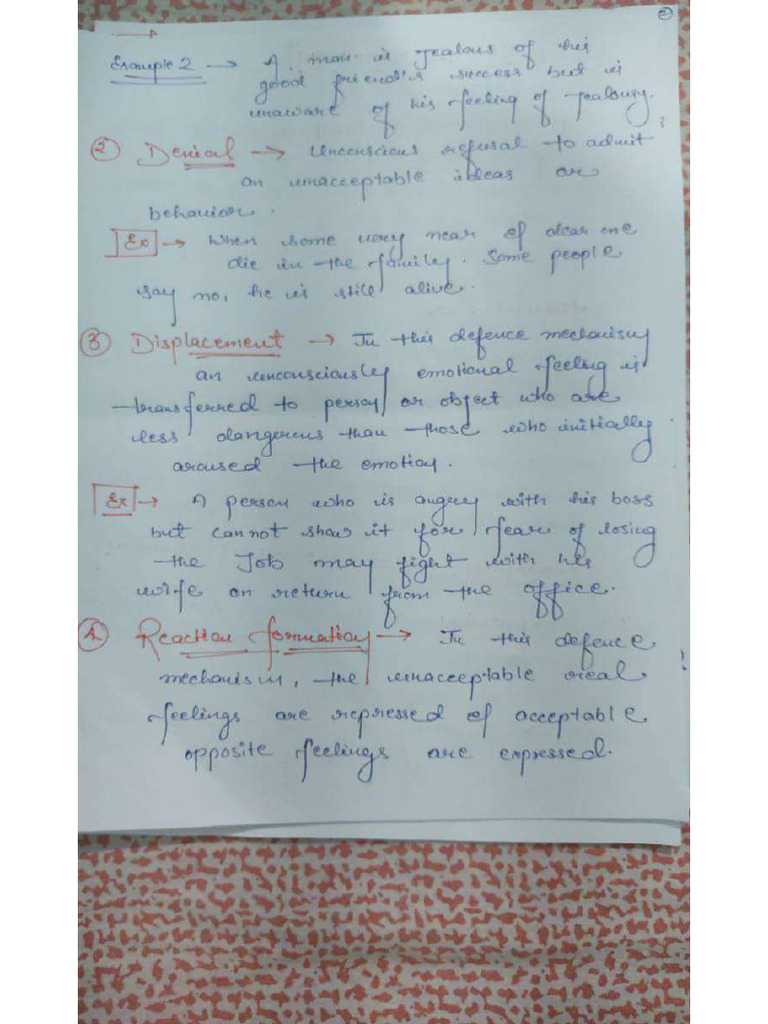 ②
Example 2 → A man is jealous of his
good friend's success but is
unaware of his feeling of jealousy.
② Denial → Unconscious refusal to admit
an unacceptable ideas or
behavior.
Ex → When some very near & dear one
die in the family. Some people
say no, he is still alive.
③ Displacement → In this defence mechanism
an unconsciously emotional feeling is
transferred to person or object who are
less dangerous than those who initially
aroused the emotion.
Ex → A person who is angry with his boss
but cannot show it for fear of losing
the Job may fight with his
wife on return from the office.
④ Reaction formation → In this defence
mechanism, the unacceptable real
feelings are repressed & acceptable
opposite feelings are expressed.